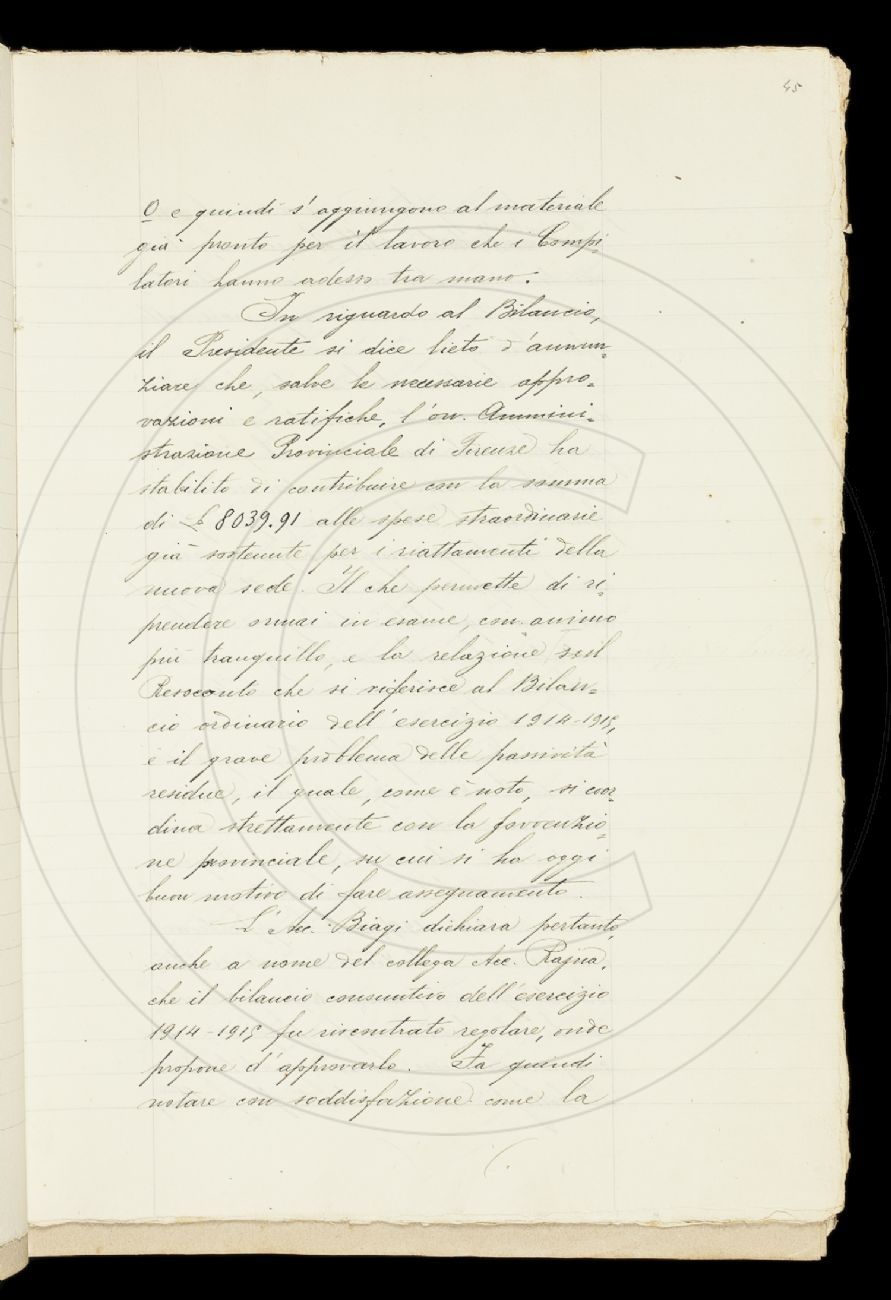 45
O e quindi s'aggiungono al materiale
già pronto per il lavoro che i Compi=
latori hanno adesso tra mano.
In riguardo al Bilancio,
il Presidente si dice lieto d'annun=
ziare che, salve le necessarie appro=
vazioni e ratifiche, l'on. Ammini=
strazione Provinciale di Firenze ha
stabilito di contribuire con la somma
di £ 8039.91 alle spese straordinarie
già sostenute per i riattamenti della
nuova sede. Il che permette di ri=
prendere ormai in esame, con animo
più tranquillo, e la relazione sul
Resoconto che si riferisce al Bilan=
cio ordinario dell'esercizio 1914-1915,
e il grave problema delle passività
residue, il quale, come è noto, si coor=
dina strettamente con la sovvenzio=
ne provinciale, su cui si ha oggi
buon motivo di fare assegnamento.
L'Acc. Biagi dichiara pertanto,
anche a nome del collega Acc. Rajna,
che il bilancio consuntivo dell'esercizio
1914-1915 fu riscontrato regolare, onde
propone d'approvarlo. Fa quindi
notare con soddisfazione come la